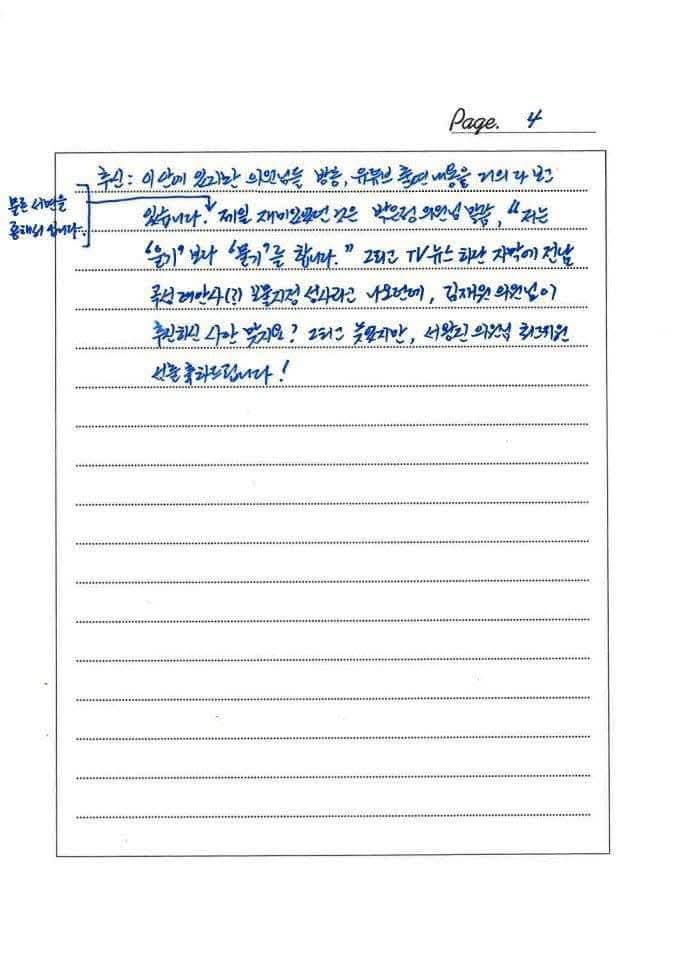 Page. 4
추신: 이 안에 있지만 의원님들 방송, 유튜브 출연 내용을 거의 다 보고
물론 서면을
통해서 입니다..
있습니다. 제일 재미있었던 것은 박은정 의원님 말씀, "저는
'울기' 보다 '물기'를 합니다." 그리고 TV 뉴스 하단 자막에 전남
곡성 태안사(?) 보물지정 성사라고 나오던데, 김재원 의원님이
추진하신 사안 맞지요? 그리고 늦었지만, 서왕진 의원님 최고위원
선출 축하드립니다!